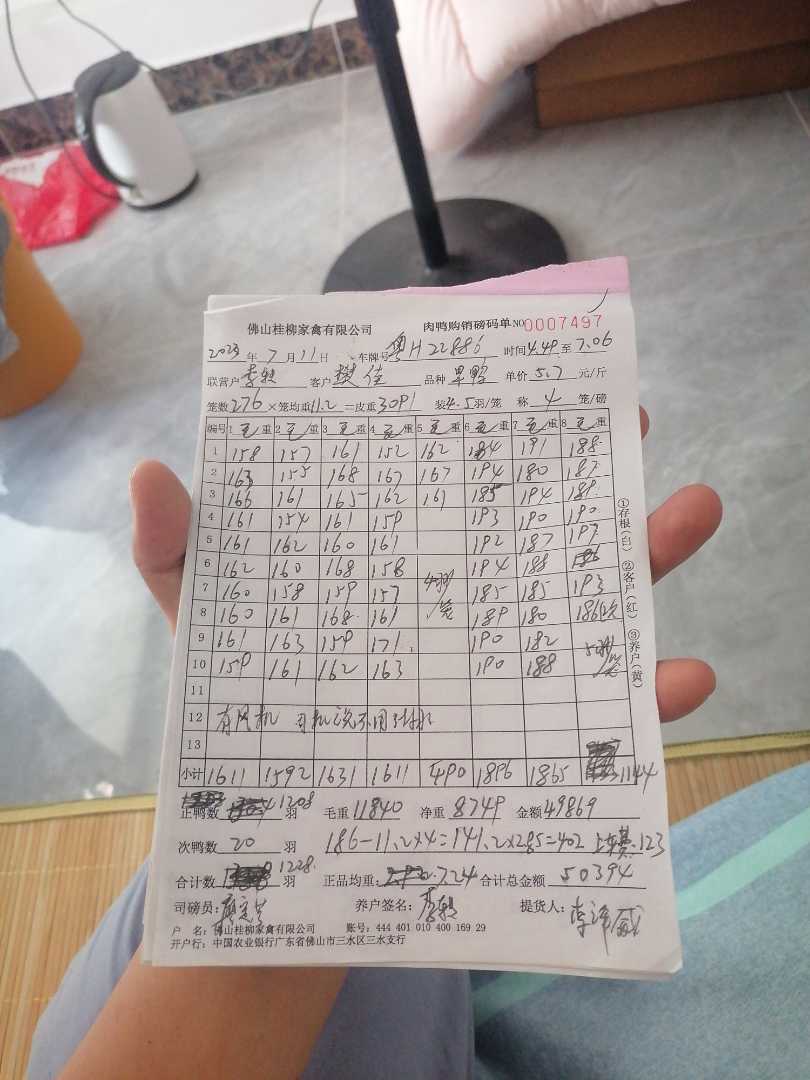 佛山桂柳家禽有限公司 肉鸭购销磅码单 NO 0007497
2023 年 7 月 11 日 车牌号 粤H22886 时间 4.49 至 7.06
联营户 客户 樊佳 品种 单价 5.7 元/斤
笼数 276 ×笼均重 11.2 =皮重 3091 装 4.5 羽/笼 称 4 笼/磅
编号 1 毛 重 2 毛 重 3 毛 重 4 毛 重 5 毛 重 6 毛 重 7 毛 重 8 毛 重
1 158 157 161 152 162 184 191 188
2 163 155 168 167 167 194 180 187
3 166 161 165 162 161 185 194 189
4 161 154 161 159 193 190 190
5 161 162 160 161 192 187 197
6 162 160 168 158 194 188 186
7 160 158 159 157 4羽/笼 185 185 193
8 160 161 168 161 189 180 186次
9 161 163 159 171 190 182
10 159 161 162 163 190 188 5羽/笼
11
12 有风机 司机说不用
13
小计 1611 1592 1631 1611 490 1896 1865 1144
正鸭数 1208 羽 毛重 11840 净重 8749 金额 49869
次鸭数 20 羽 186-11.2×4=141.2×2.85=402 上车费:123
合计数 1228 羽 正品均重: 7.24 合计总金额 50394
司磅员: 养户签名: 提货人:
户 名: 佛山桂柳家禽有限公司 账号: 444 401 010 400 169 29
开户行: 中国农业银行广东省佛山市三水区三水支行
①存根(白) ②客户(红) ③养户(黄)